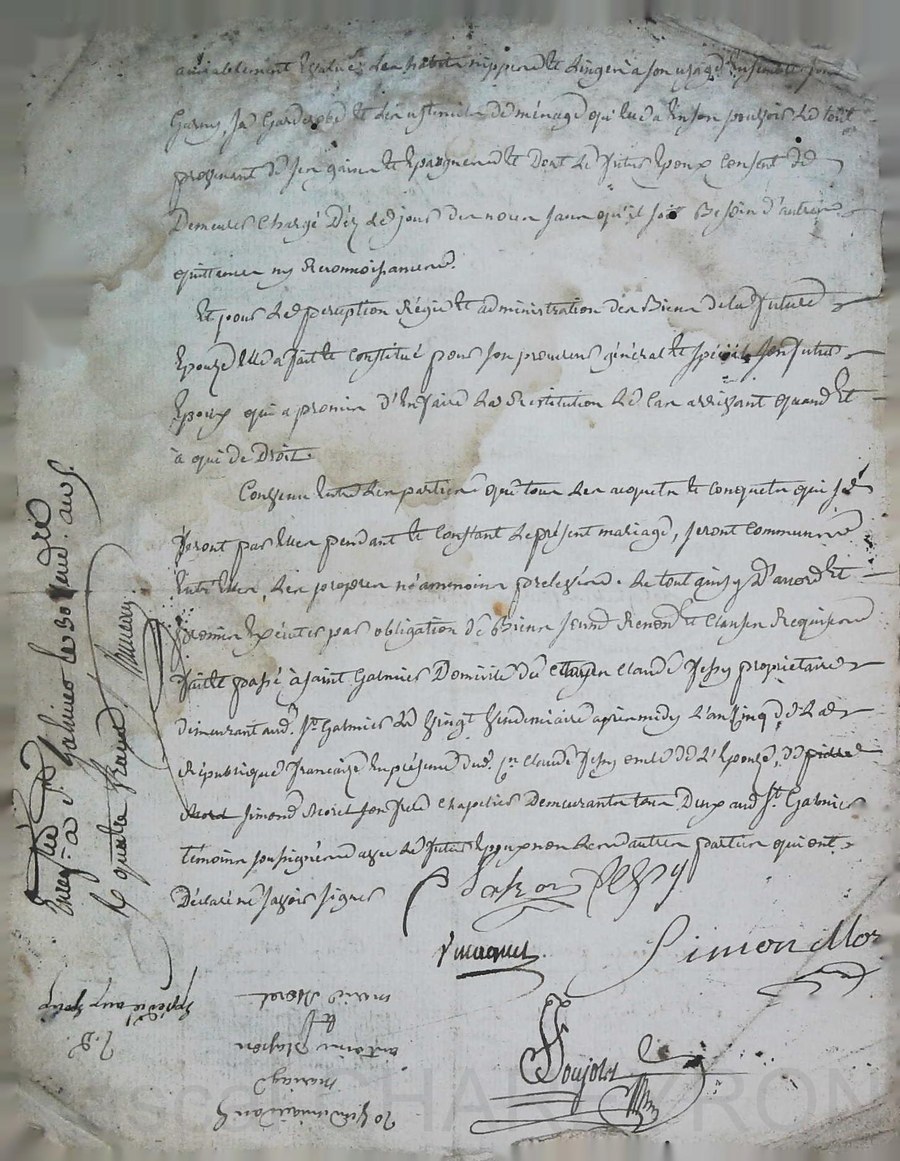 amiablement Evalué, des habits nippes et Linges à son usage Ensemble son
Garny, sa Garderobe et des ustensiles de ménage qu'elle a En son pouvoir Le tout
provenant de ses gains et Epargnes et Dont Le futur Epoux Consent de
Demeurer Chargé Dèz Le jour des noces sans qu'il soit Besoin d'autres
quittances ny Reconnoissances.
Et pour La perception Régie et administration des Biens de la future
Epouze Elle a fait et Constitué pour son procureur général et spécial son futur
Epoux qui a promis d'En faire La Restitution Le Cas arrivant quand Et
à qui de Droit.
Convenu Entre Les parties que tous Les acquets et Conquets qui se
feront par Elles pendant et Constant Le présent mariage, seront Communs
Entre Elles, Les propres néammoins prélevés. Le tout ainsy D'accord Et
promis Exécuter par obligation de Biens
fait et passé à saint Galmier Domicile du Citoyen Claude propriétaire
demeurant aud. St. Galmier Le Vingt Vendemiaire après midy L'an Cinq de La
République française En présence dud. Cn. Claude oncle de L'Epouze, de
Simond Moret son frère Chapelier Demeurants tous Deux aud. St. Galmier
témoins soussignés avec Le futur Epoux non Les autres parties qui ont
Déclaré ne savoir signer
Simon Mor
Soujolet
Enregré à St. Galmier le 30 Vend. an 5.
quatre francs
20 Vendemiaire an 5
mariage
antoine
et
marie Moret
Expédié aux